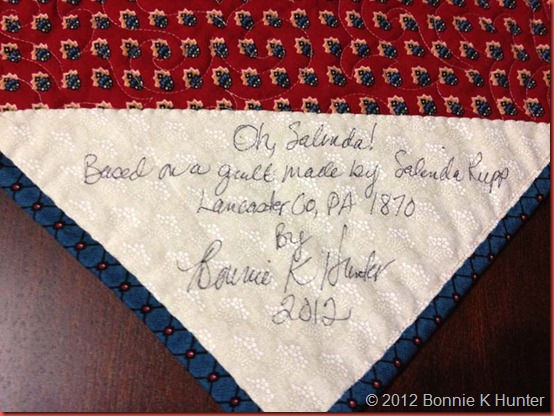 Oh, Salinda!
Based on a quilt made by Salinda Rupp
Lancaster Co, PA 1870
By
Bonnie K Hunter
2012
© 2012 Bonnie K Hunter